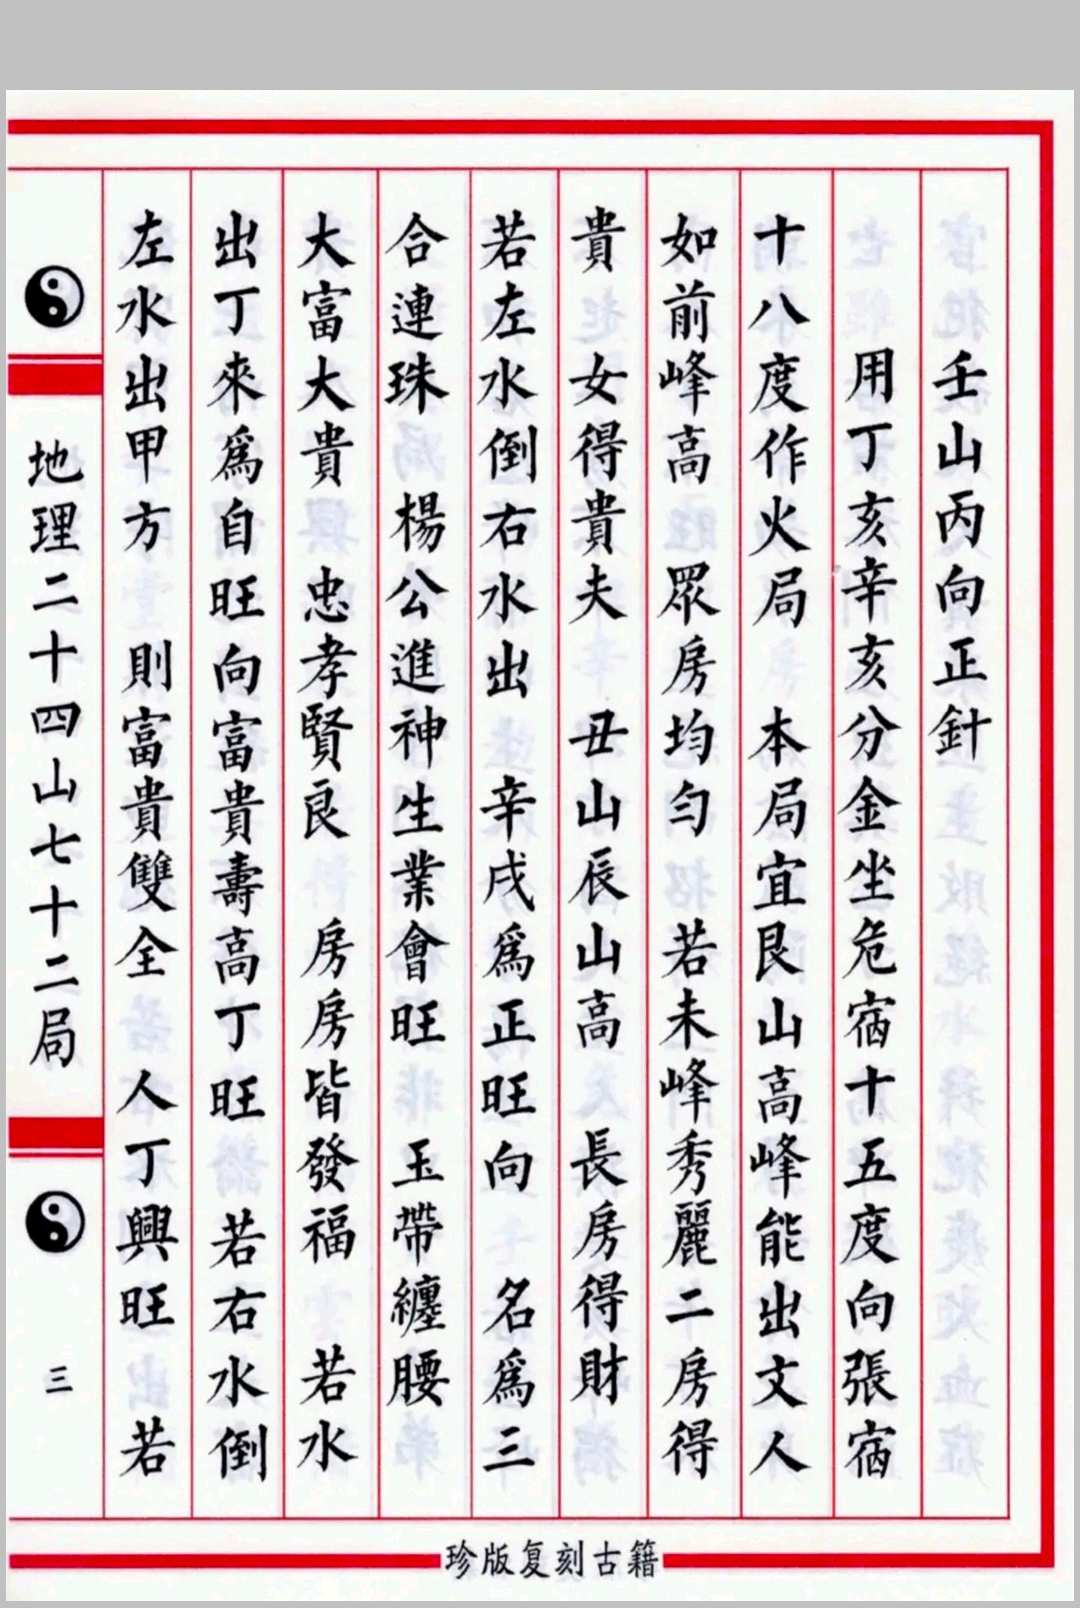 壬山丙向正針
用丁亥辛亥分金坐危宿十五度向張宿
十八度作火局　本局宜艮山高峰能出文人
如前峰高　眾房均勻　若未峰秀麗二房得
貴　女得貴夫　丑山辰山高　長房得財
若左水倒右水出　辛戌為正旺向　名為三
合連珠　楊公進神生業會旺　玉帶纏腰
大富大貴　忠孝賢良　房房皆發福　若水
出丁來為自旺向富貴壽高丁旺　若右水倒
左水出甲方　則富貴雙全　人丁興旺　若
地理二十四山七十二局
三
珍版复刻古籍